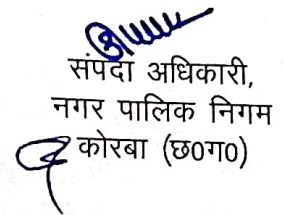 संपदा अधिकारी,
नगर पालिक निगम
कोरबा (छ0ग0)